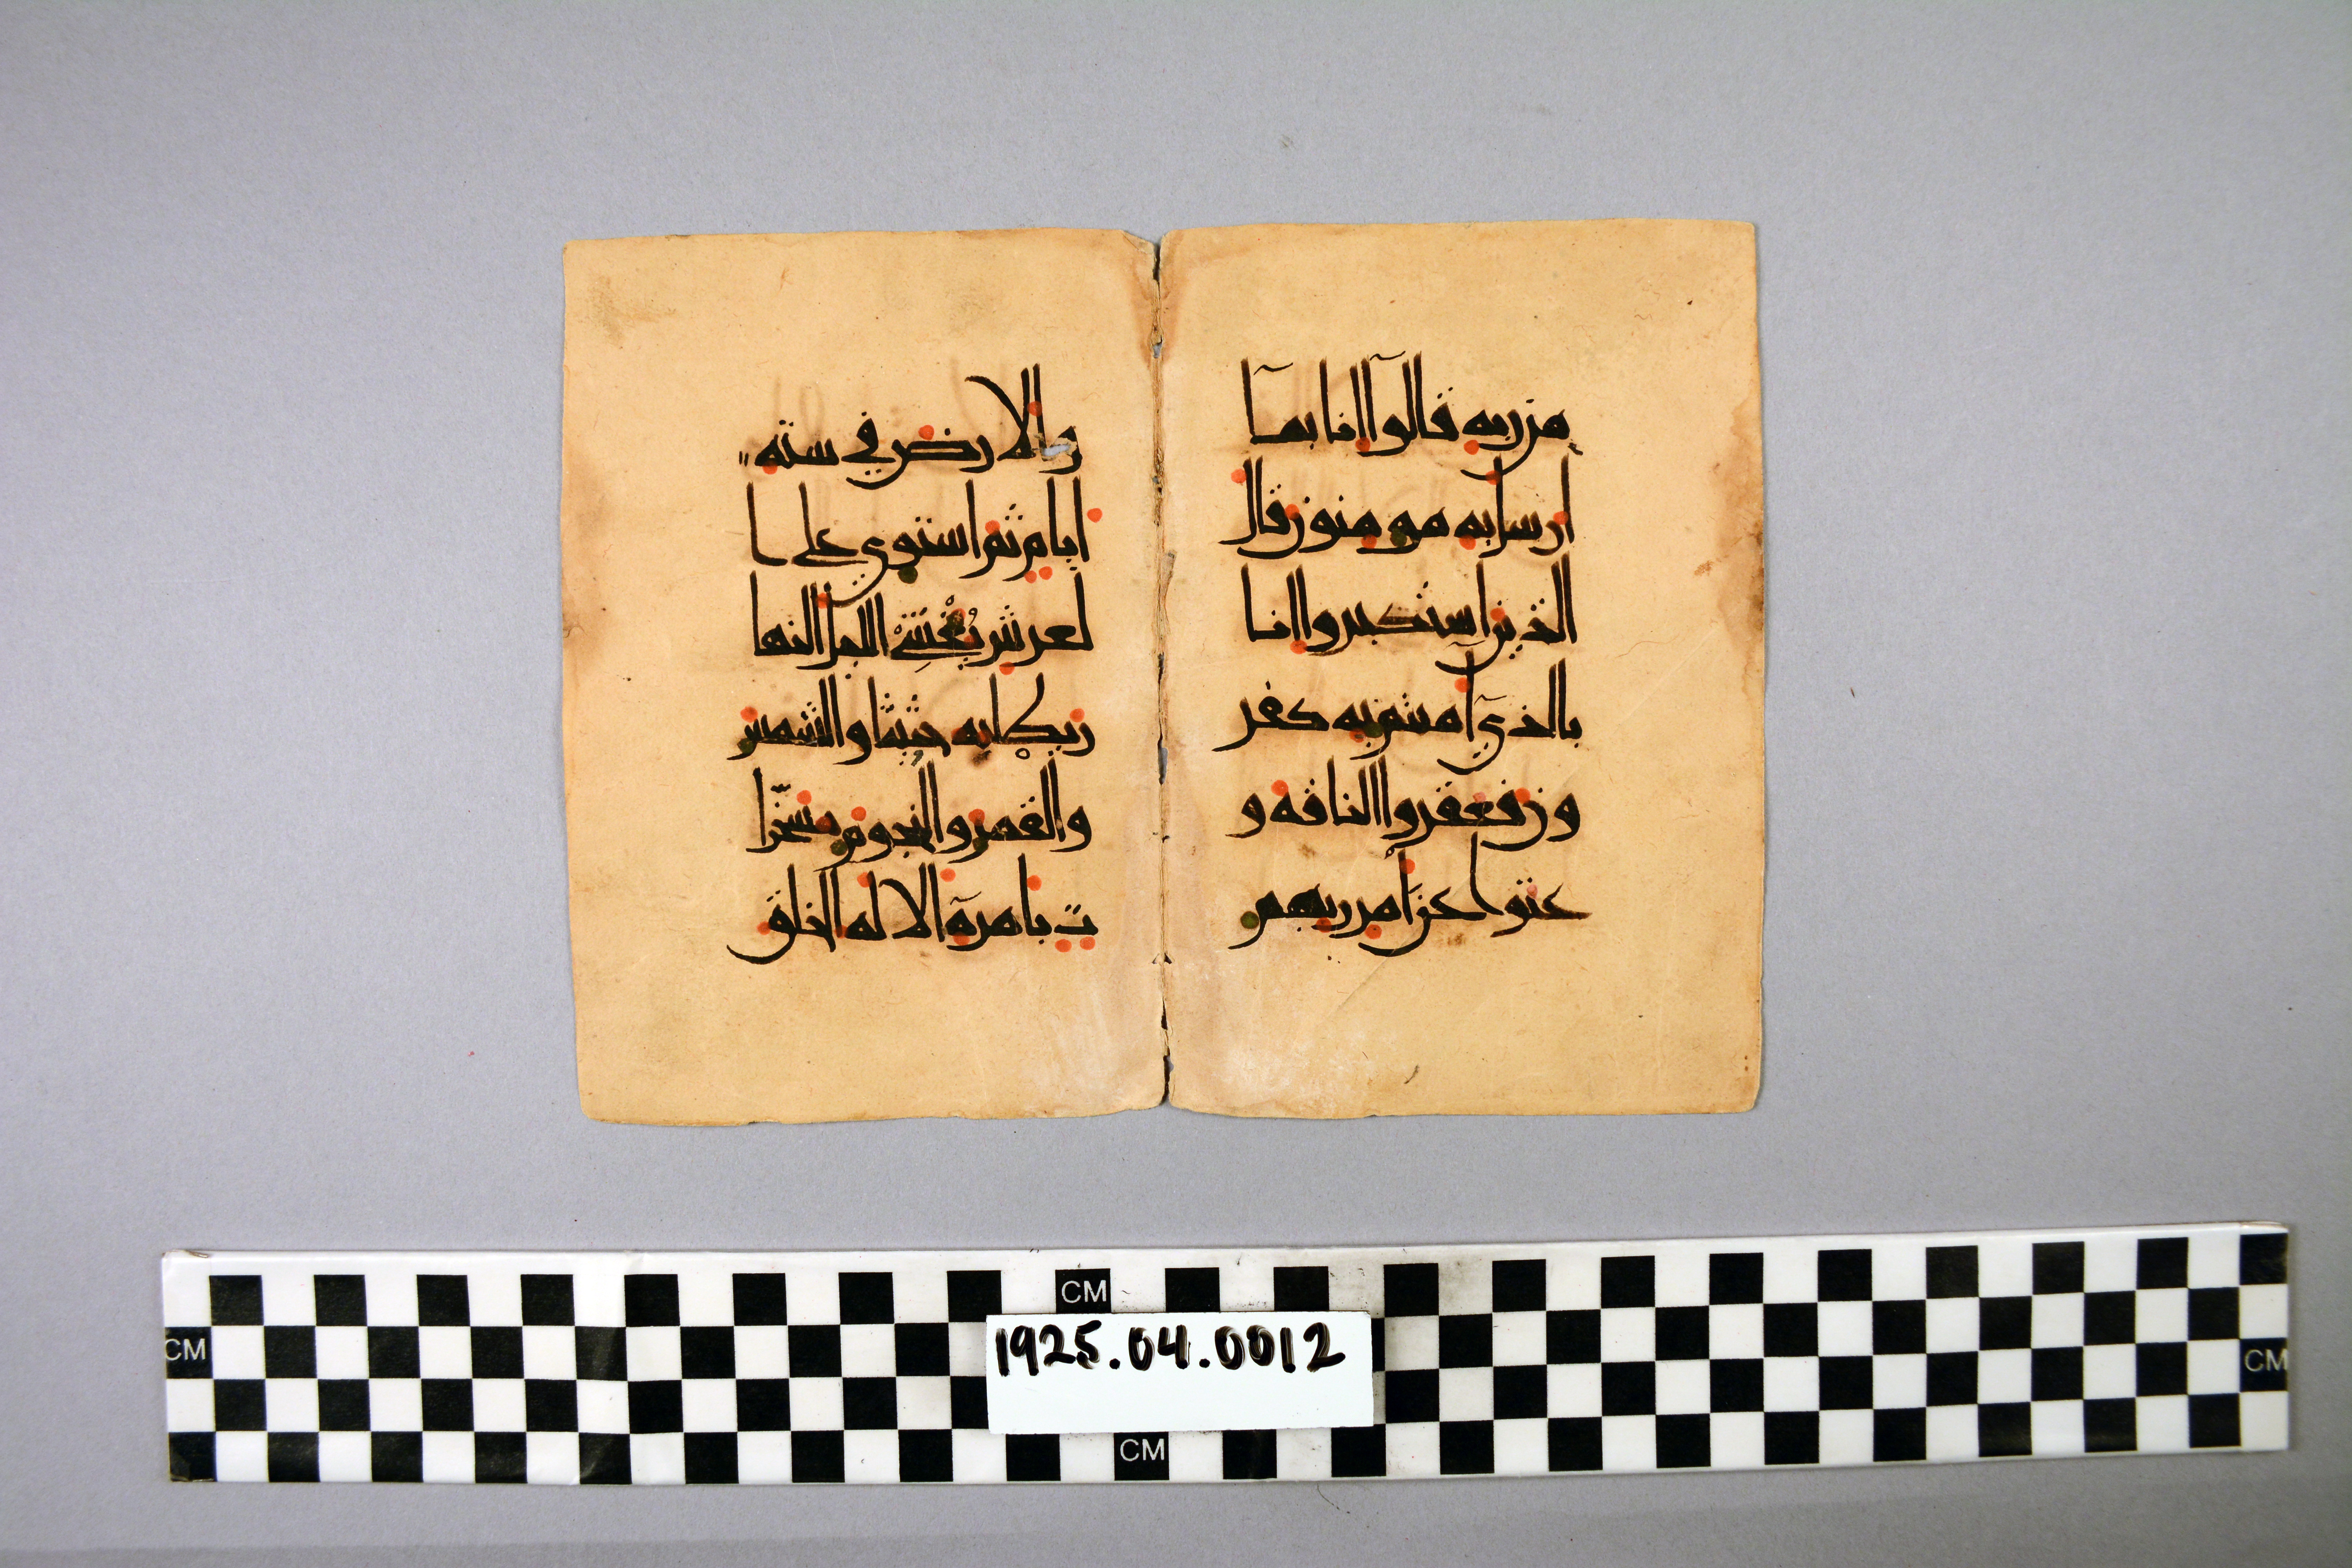 من ربه قالوآ انا بمآ
ارسل به مومنون قال
الذين استكبروا انا
بالذي آمنتم به كفر
ون فعقروا الناقه و
عتوا عن امر ربهم
والارض في سته
ايام ثم استوى على ا
لعرش يُغْشِي اليل النها
ر يطلبه حثيثا والشمس
والقمر والنجوم مسخّرا
ت بامره الا له الخلق
CM
CM
1925.04.0012
CM
CM